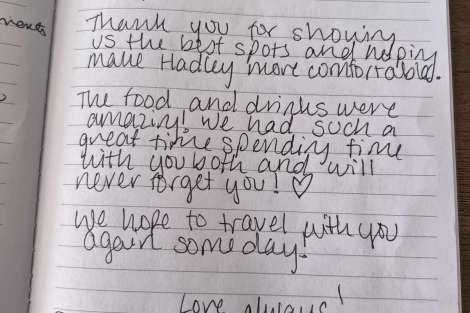 Thank you for showing
us the best spots and helping
make Hadley more comfortable.
The food and drinks were
amazing! We had such a
great time spending time
with you both and will
never forget you! ♡
We hope to travel with you
again someday!
Love always!